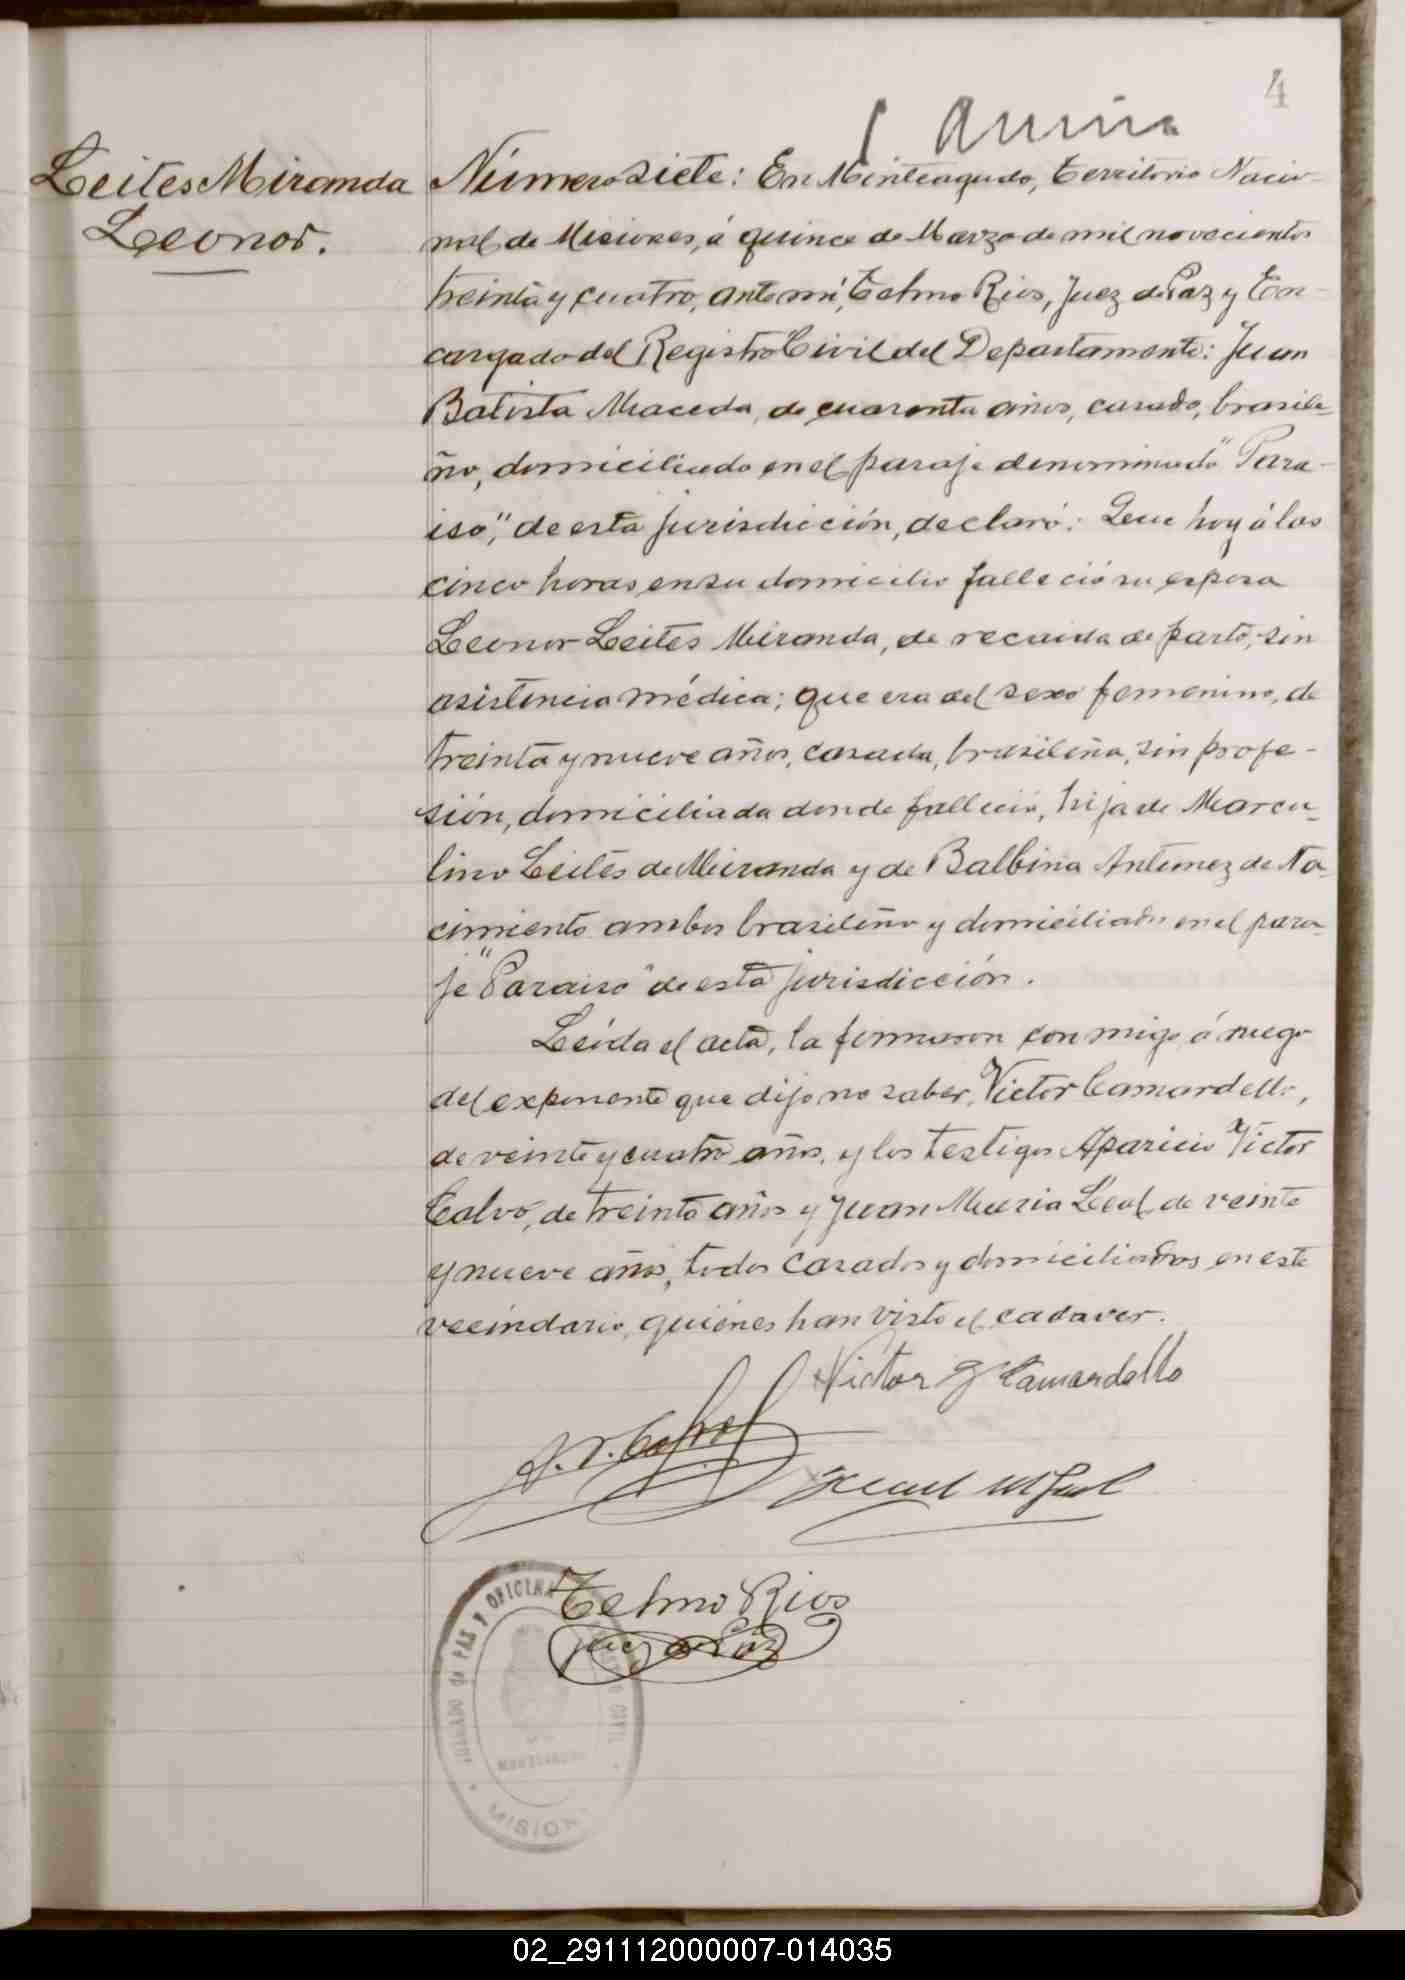 4
Leites Miranda
Leonor.
Número siete: En Monteagudo, Territorio Nacio-
nal de Misiones, á quince de Marzo de mil novecientos
treinta y cuatro, ante mí, Telmo Rios, Juez de Paz y En-
cargado del Registro Civil del Departamento: Juan
Batista Maceda, de cuarenta años, casado, brasile-
ño, domiciliado en el paraje denominado "Para-
iso", de esta jurisdicción, declaró: Que hoy á las
cinco horas, en su domicilio falleció su esposa
Leonor Leites Miranda, de recaida de parto, sin
asistencia médica; que era del sexo femenino, de
treinta y nueve años, casada, brasileña, sin profe-
sión, domiciliada donde falleció, hija de Marcu-
lino Leites de Miranda y de Balbina Antunez de Na-
cimiento ambos brasileño y domiciliados en el para-
je "Paraiso" de esta jurisdicción.
Leída el acta, la firmaron conmigo, á ruego
del exponente que dijo no saber, Victor Camardello,
de veinte y cuatro años, y los testigos Aparicio Victor
Calvo, de treinta años y Juan Maria Leal, de veinte
y nueve años, todos casados y domiciliados en este
vecindario, quiénes han visto el cadaver.
Victor G Camardello
A. V. Calvo
Juan M Leal
Telmo Rios
Juez de Paz
JUZGADO DE PAZ Y OFICINA CIVIL
MISION
02_291112000007-014035